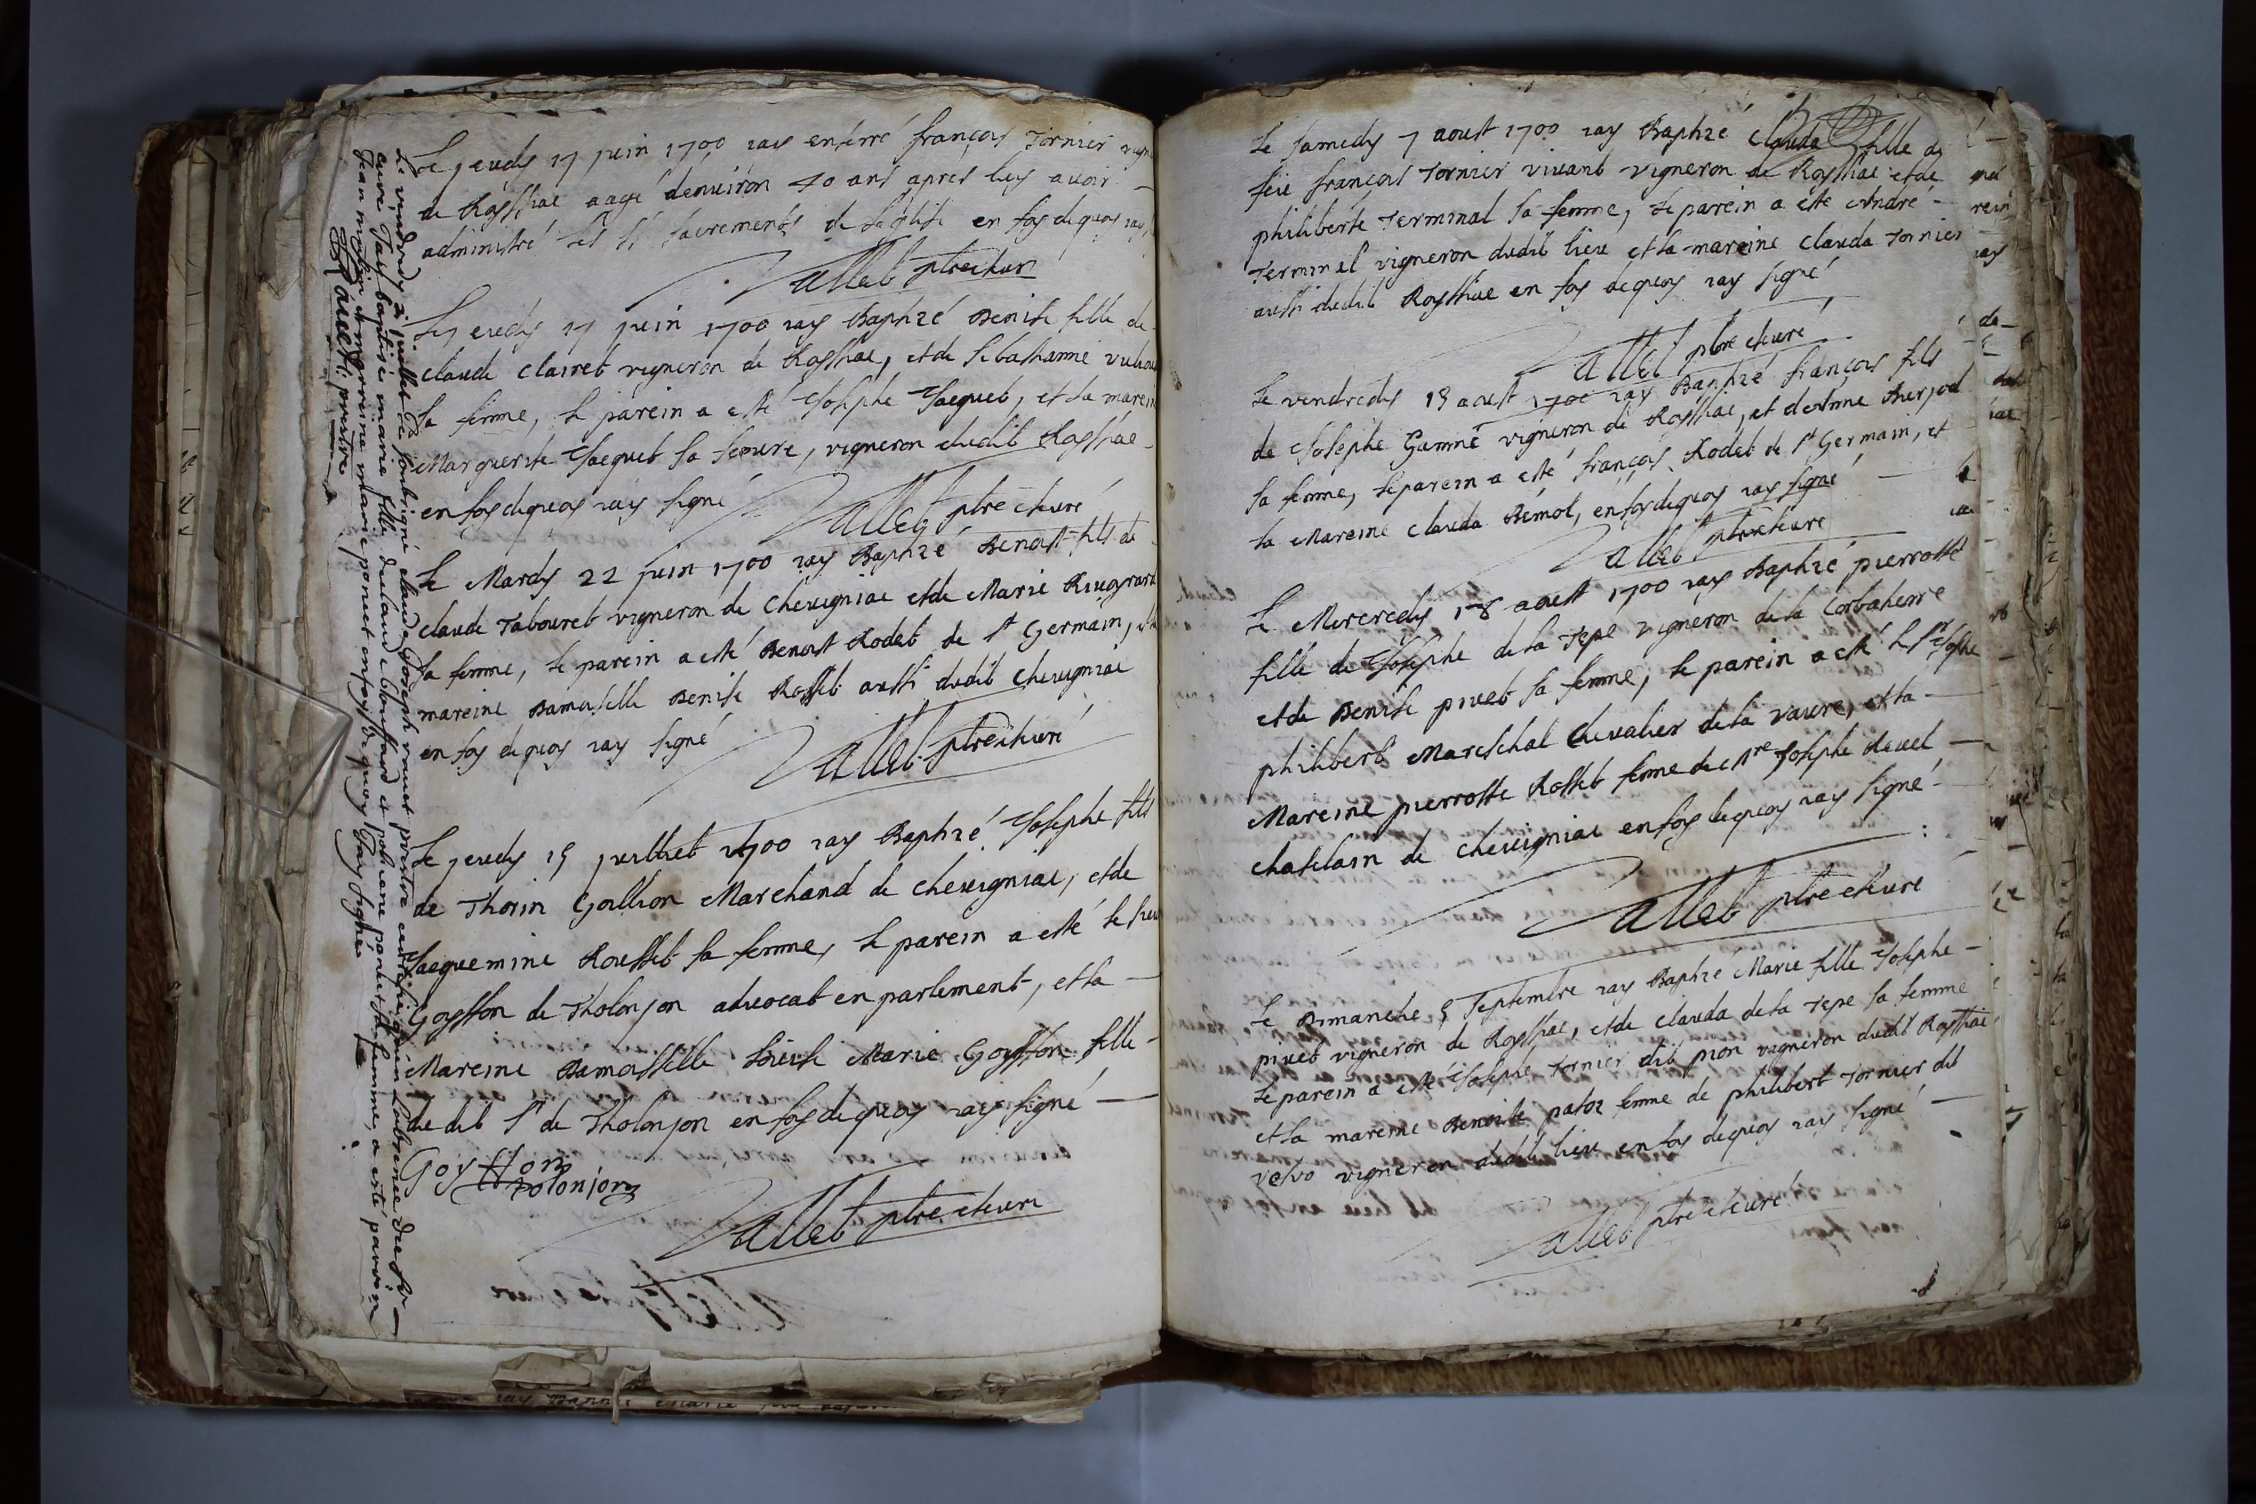 Le jeudy 17 juin 1700 iay enterré françois Tornier
de Rossiac aagé denviron 40 ans apres luy avoir
administré les sts sacrements de leglise en foy dequoy iay
Vallet ptre et curé
Le jeudy 17 juin 1700 iay Baptizé Denise fille de
claude clairet vigneron de Rossiac, et de sebastianne
sa femme, le parein a esté Josephe Jacquet, et la mareine
Marguerite Jacquet sa soeure, vigneron dudit Rossiac
en foy dequoy iay signé
Vallet ptre et curé
Le Mardy 22 juin 1700 iay Baptizé Benoist fils de
claude Tabouret vigneron de chevigniac et de Marie
sa femme, le parein a esté Benoist Rodet de st Germain,
mareine Damoiselle Denise Rosset aussi dudit chevigniac
en foy dequoy iay signé
Vallet ptre et curé
Le jeudy 15 juilliet 1700 iay Baptizé Josephe fils
de Thorin Goillion Marchand de chevigniac, et de
Jacquemine Rousset sa femme, le parein a esté le sieur
Goyffon de Tholonjon advocat en parlement, et la
Mareine Damoiselle Louise Marie Goyffon fille
du dit sr de Tholonjon en foy dequoy iay signé
Goyffon
Tholonjon
Vallet ptre et curé
Le vendredy 2 juillet je soubsigné claude joseph vouet prestre certifie qu'en l'absence du sr
curé j'ay baptisé marie fille de claude blouffard et polliene ponet sa femme, a esté parrein
jean morion et marreine marie ponet en foy de quoy j'ay signé
Rouet: prestre
Le samedy 7 aoust 1700 iay Baptizé clauda fille de
feu françois Tornier vivant vigneron de Rossiac et de
philiberte Terminal sa femme, le parein a esté André
Terminal vigneron dudit lieu et la mareine clauda Tornier
aussi dudit Rossiac en foy de quoy iay signé
Vallet ptre et curé
Le vendredy 13 aoust 1700 iay Baptizé françois fils
de Josephe Gamné vigneron de Rossiac, et de Anne Burjod
sa femme, le parein a esté françois Rodet de st Germain, et
la Mareine clauda Bémol, en foy dequoy iay signé
Vallet ptre et curé
Le Mercredy 18 aoust 1700 iay Baptizé pierrotte
fille de Josephe de la Tepe vigneron de la Corbatiere
et de Denise pivet sa femme, le parein a esté Le sr Josphe
philibert Mareschal Chevalier de la vavre, et la
Mareine pierrotte Rosset femme de Mre Josephe Revel
chatelain de chevigniac en foy de quoy iay signé
Vallet ptre et curé
Le Dimanche 5 septembre iay Baptizé Marie fille Josephe
pivet vigneron de Rossiac, et de clauda de la Tepe sa femme
Le parein a esté Josephe Tornier dit pion vigneron dudit Rossiac
et la mareine Benoite patoz femme de philibert Tornier dit
velvo vigneron dudit lieu en foy de quoy iay signé
Vallet ptre et curé